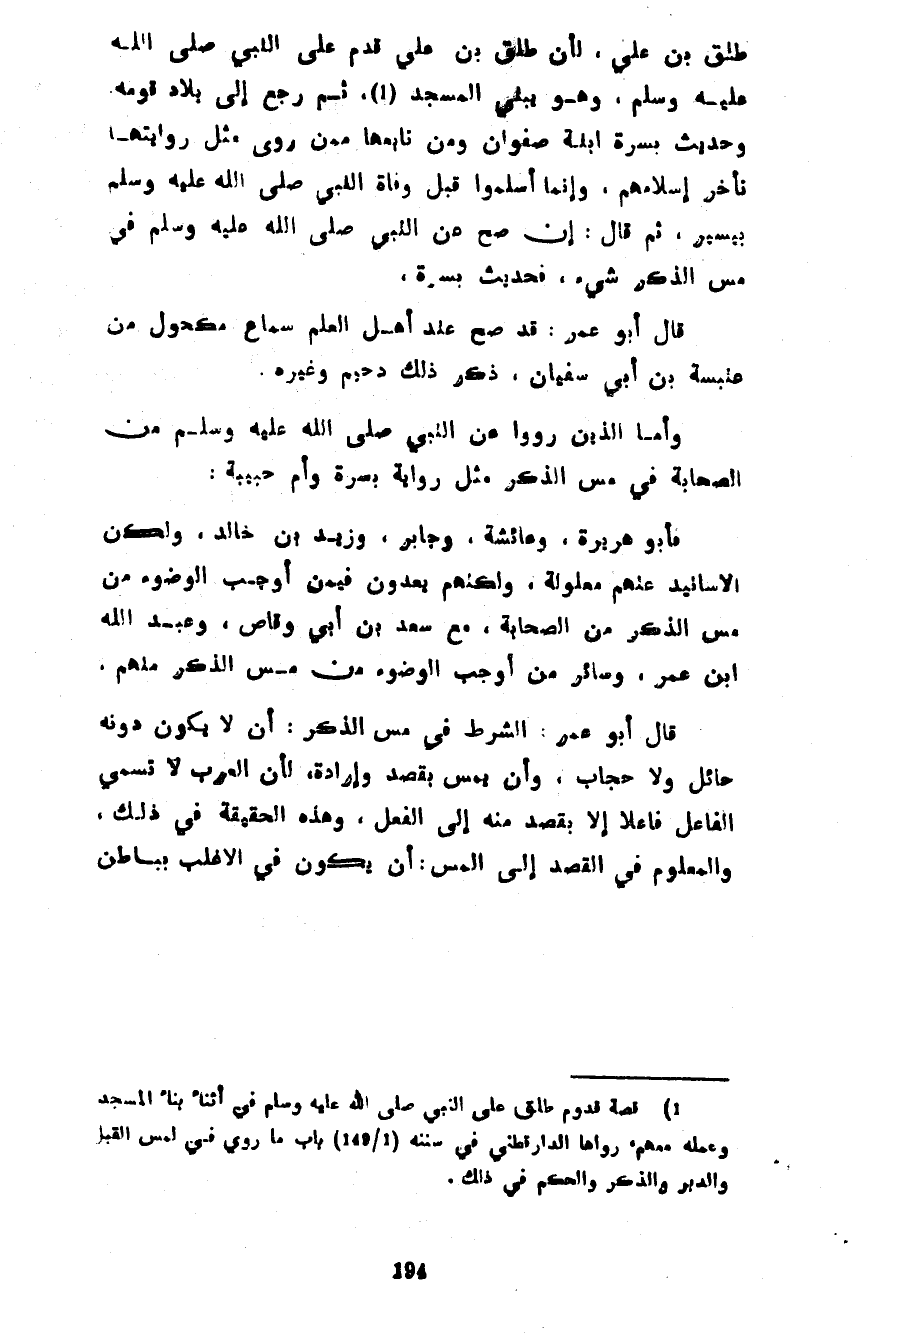 طلق بن علي ، لأن طلق بن علي قدم على النبي صلى الله
عليه وسلم ، وهو يبني المسجد (1)، ثم رجع إلى بلاد قومه
وحديث بسرة ابنة صفوان ومن تابعها ممن روى مثل روايتها
تأخر إسلامهم ، وإنما أسلموا قبل وفاة النبي صلى الله عليه وسلم
بيسير ، ثم قال : إن صح عن النبي صلى الله عليه وسلم في
مس الذكر شيء ، فحديث بسرة ،
قال أبو عمر : قد صح عند أهل العلم سماع مكحول من
عنبسة بن أبي سفيان ، ذكر ذلك دحيم وغيره .
وأما الذين رووا عن النبي صلى الله عليه وسلم من
الصحابة في مس الذكر مثل رواية بسرة وأم حبيبة :
فأبو هريرة ، وعائشة ، وجابر ، وزيد بن خالد ، ولكن
الاسانيد عنهم معلولة ، ولكنهم يعدون فيمن أوجب الوضوء من
مس الذكر من الصحابة ، مع سعد بن أبي وقاص ، وعبد الله
ابن عمر ، وسائر من أوجب الوضوء من مس الذكر منهم .
قال أبو عمر : الشرط في مس الذكر : أن لا يكون دونه
حائل ولا حجاب ، وأن يمس بقصد وإرادة، لأن العرب لا تسمي
الفاعل فاعلا إلا بقصد منه إلى الفعل ، وهذه الحقيقة في ذلك ،
والمعلوم في القصد إلى المس : أن يكون في الاغلب بباطن
1) قصة قدوم طلق على النبي صلى الله عليه وسلم في أثناء بناء المسجد
وعمله معهم، رواها الدارقطني في سننه (149/1) باب ما روي في لمس القبل
والدبر والذكر والحكم في ذلك .
194